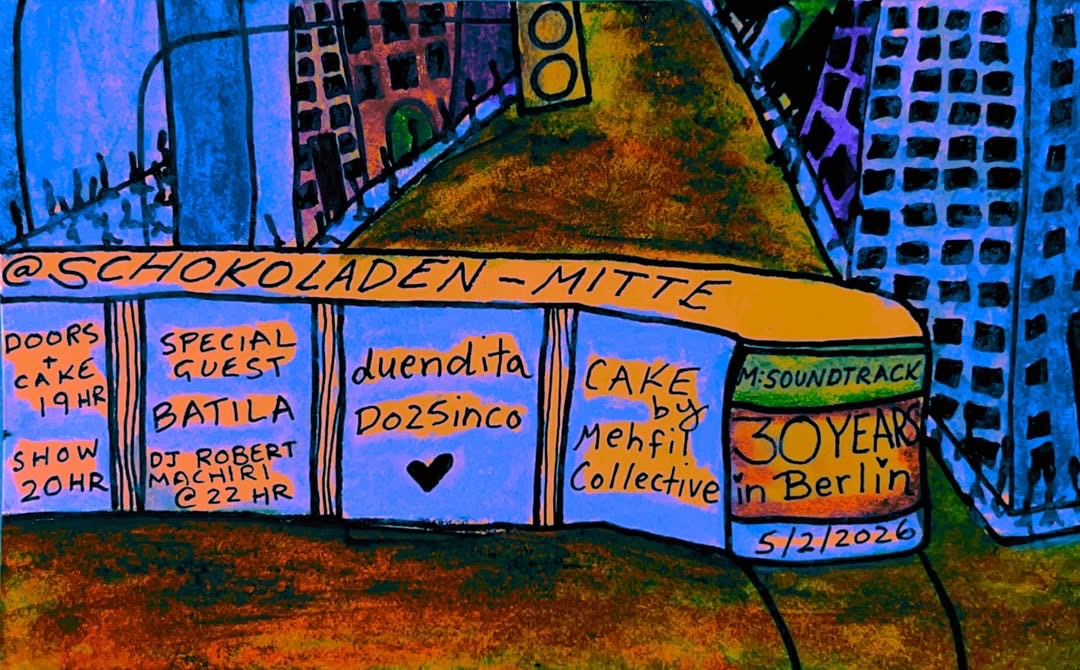 @SCHOKOLADEN-MITTE
DOORS
+
CAKE
19HR
SHOW
20HR
SPECIAL
GUEST
BATILA
DJ ROBERT
MACHIRI
@ 22 HR
duendita
Do25inco
CAKE
by
Mehfil
Collective
M:SOUNDTRACK
30 YEARS
in Berlin
5/2/2026